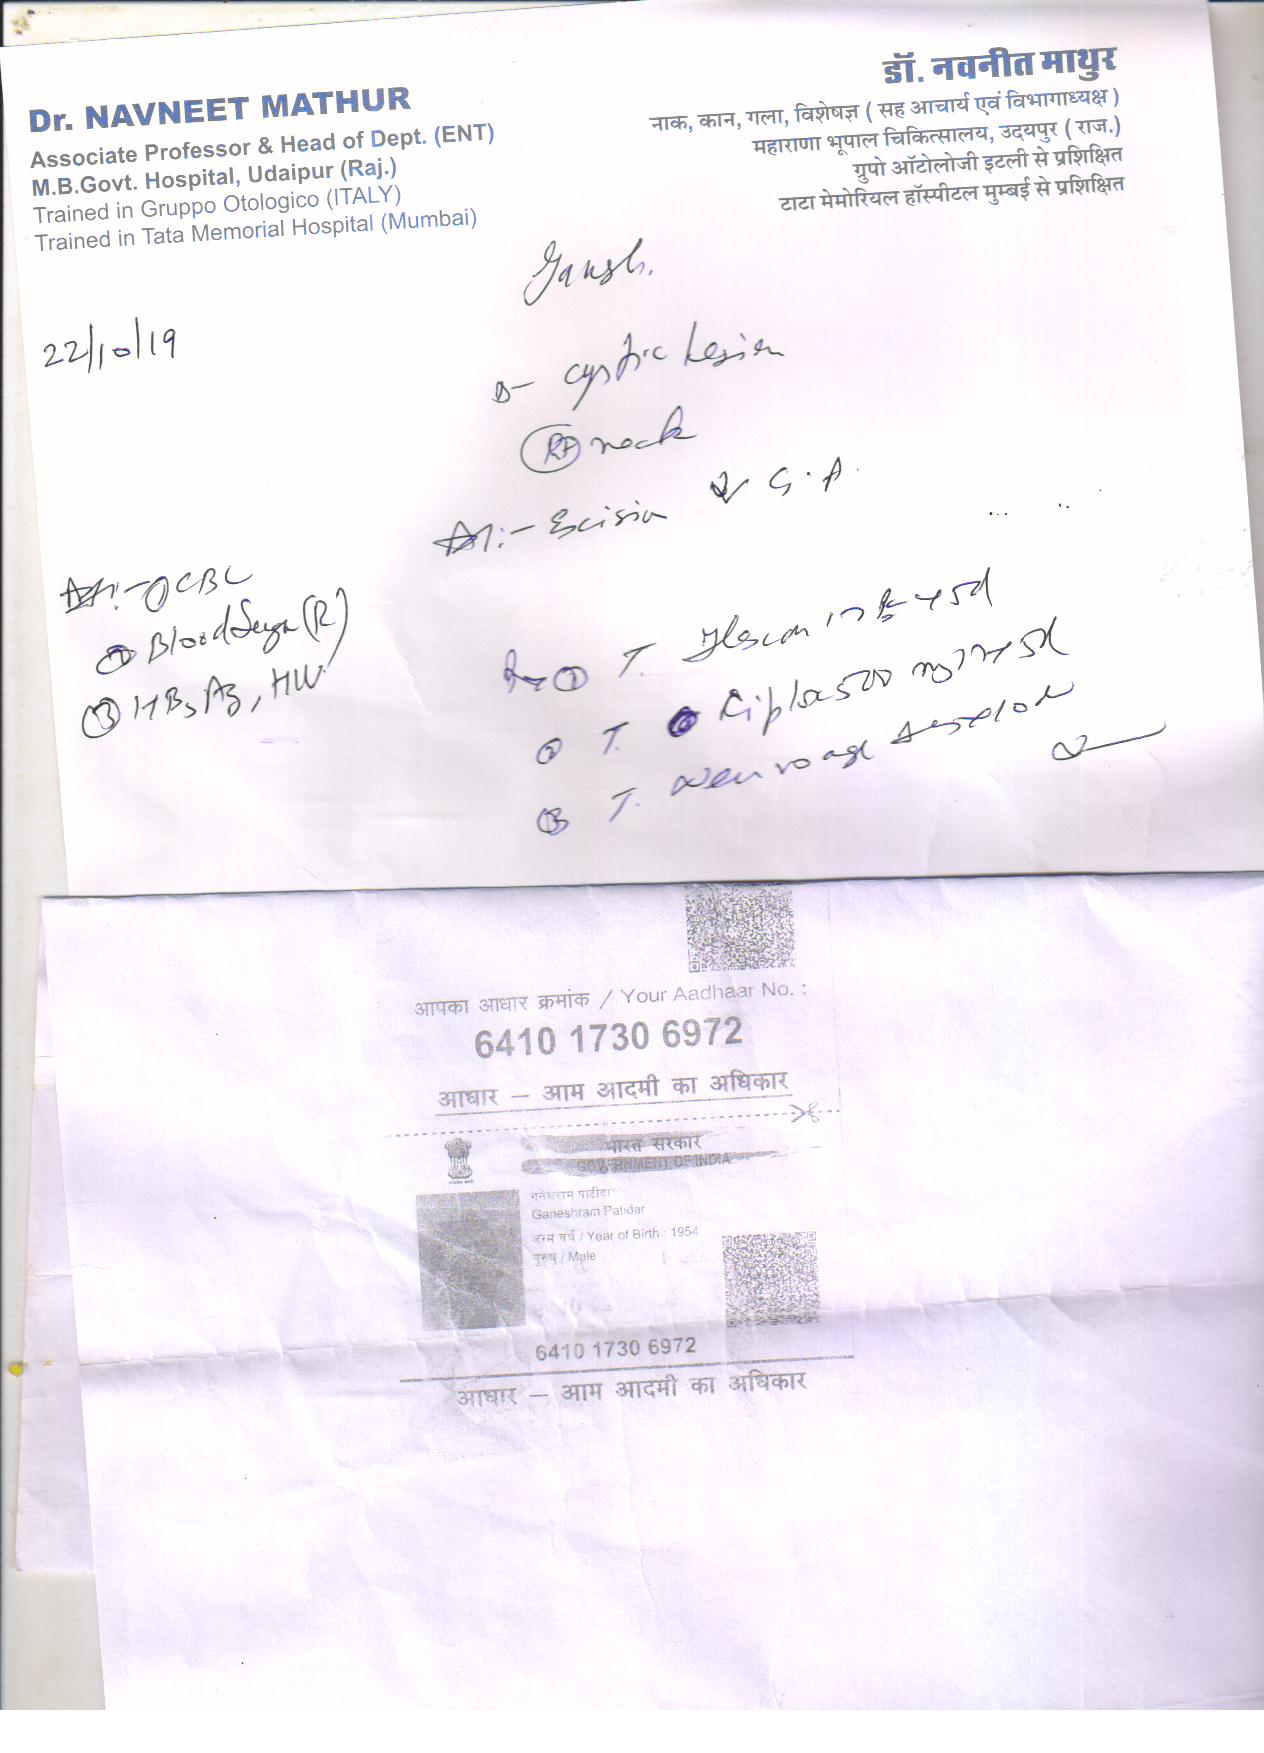 Dr. NAVNEET MATHUR
Associate Professor & Head of Dept. (ENT)
M.B.Govt. Hospital, Udaipur (Raj.)
Trained in Gruppo Otologico (ITALY)
Trained in Tata Memorial Hospital (Mumbai)
डॉ. नवनीत माथुर
नाक, कान, गला, विशेषज्ञ ( सह आचार्य एवं विभागाध्यक्ष )
महाराणा भूपाल चिकित्सालय, उदयपुर ( राज.)
ग्रुपो ऑटोलोजी इटली से प्रशिक्षित
टाटा मेमोरियल हॉस्पीटल मुम्बई से प्रशिक्षित
22/10/19
cystic lesion
Rt neck
Excision G.A.
CBC
Blood Sugar (R)
HBsAg, HIV
T.
T. 500 mg
T.
आपका आधार क्रमांक / Your Aadhaar No. :
6410 1730 6972
आधार — आम आदमी का अधिकार
भारत सरकार
GOVERNMENT OF INDIA
Ganeshram Patidar
जन्म वर्ष / Year of Birth : 1954
पुरुष / Male
6410 1730 6972
आधार — आम आदमी का अधिकार